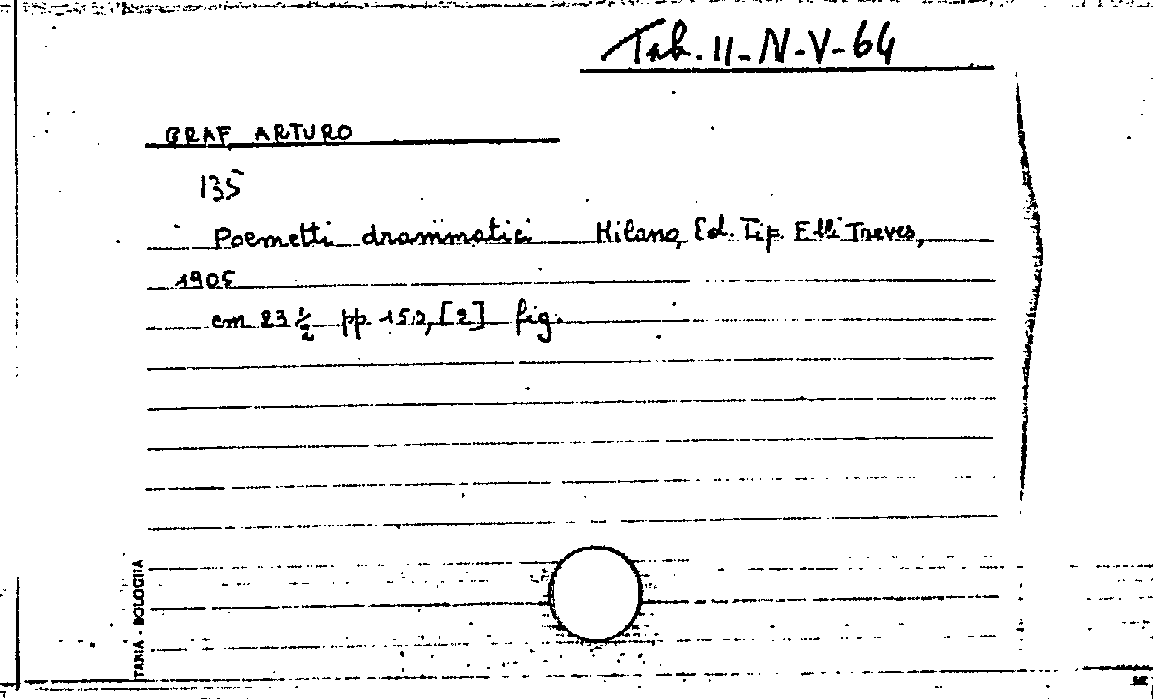 Tab. II-N-V-64
GRAF ARTURO
135
Poemetti drammatici Milano, Ed. Tip. F.lli Treves,
1905
cm 23 ½ pp. 152, [2] fig.
TARIA - BOLOGNA